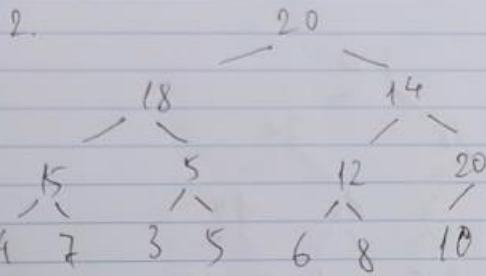 2. 20
18 14
15 5 12 20
4 7 3 5 6 8 10